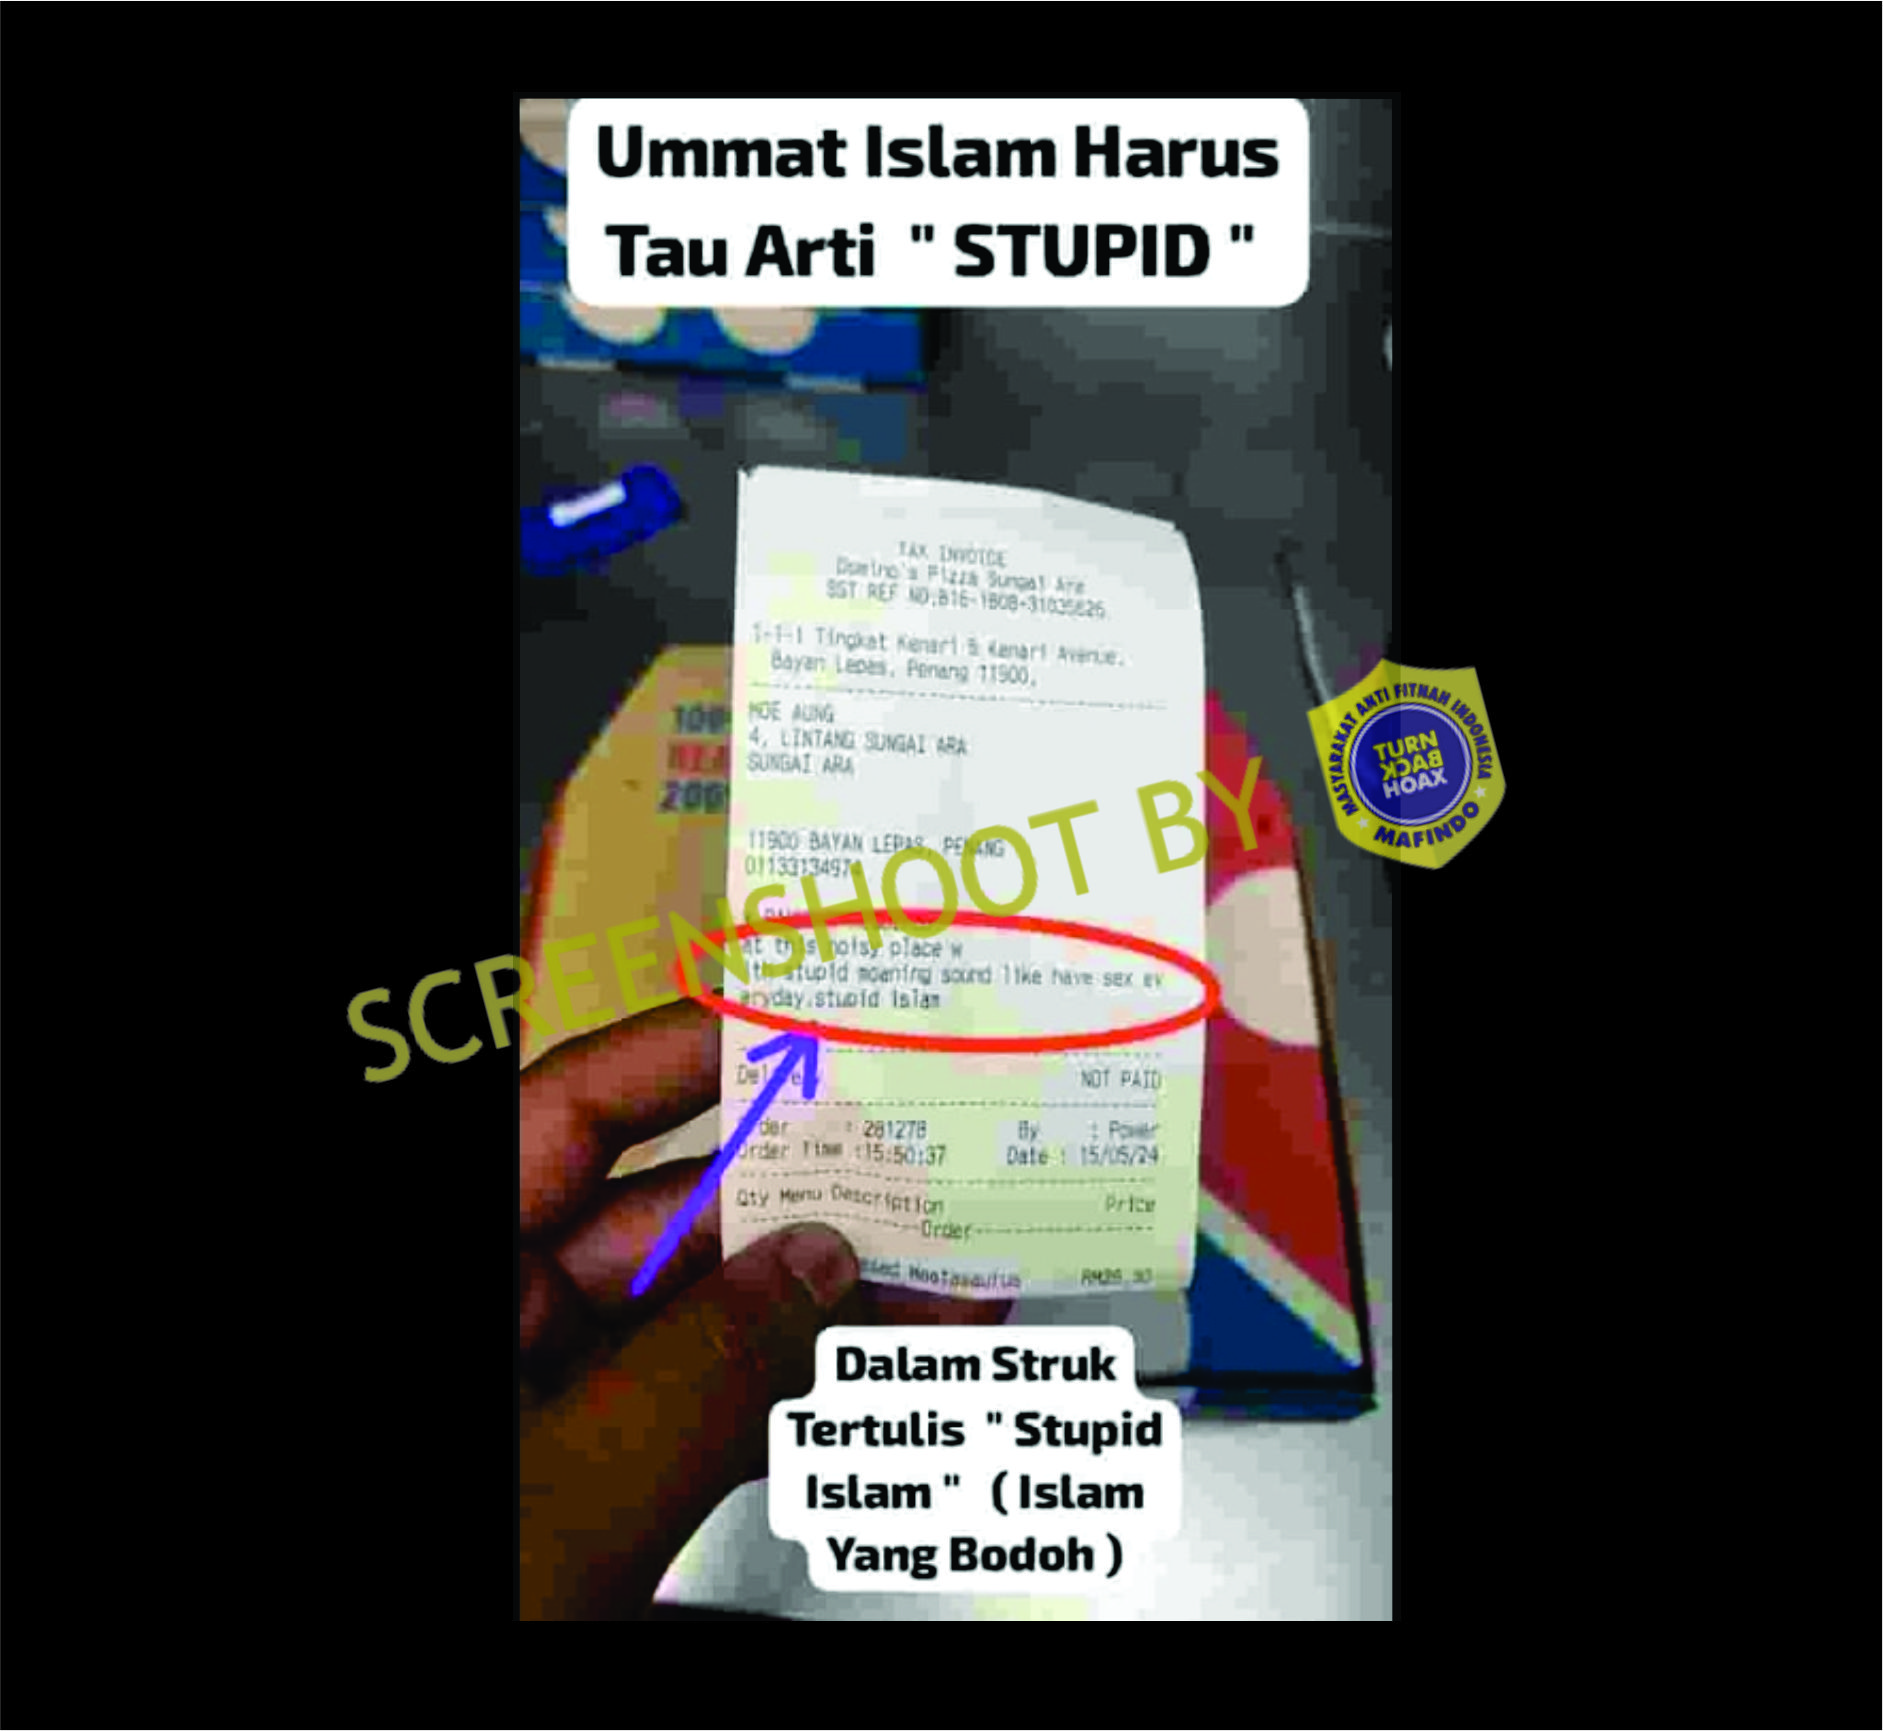 Ummat Islam Harus
Tau Arti " STUPID "
TAX INVOICE
Domino's Pizza Sungai Ara
SST REF NO:B16-1808-31035626
1-1-1 Tingkat Kenari 5 Kenari Avenue,
Bayan Lepas, Penang 11900,
MOE AUNG
4, LINTANG SUNGAI ARA
SUNGAI ARA
100%
200%
11900 BAYAN LEPAS, PENANG
01133134974
at this noisy place w
ith stupid moaning sound like have sex ev
eryday.stupid islam
NOT PAID
Order : 281278 By : Power
Order Time :15:50:37 Date : 15/05/24
Qty Menu Description Price
Order
Meatasaurus
SCREENSHOOT BY
MASYARAKAT ANTI FITNAH INDONESIA
TURN
BACK
HOAX
MAFINDO
Dalam Struk
Tertulis " Stupid
Islam " ( Islam
Yang Bodoh )